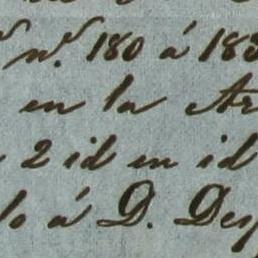 n.º 180 á 18
en la Ar
2 id en id
lo á D. Des